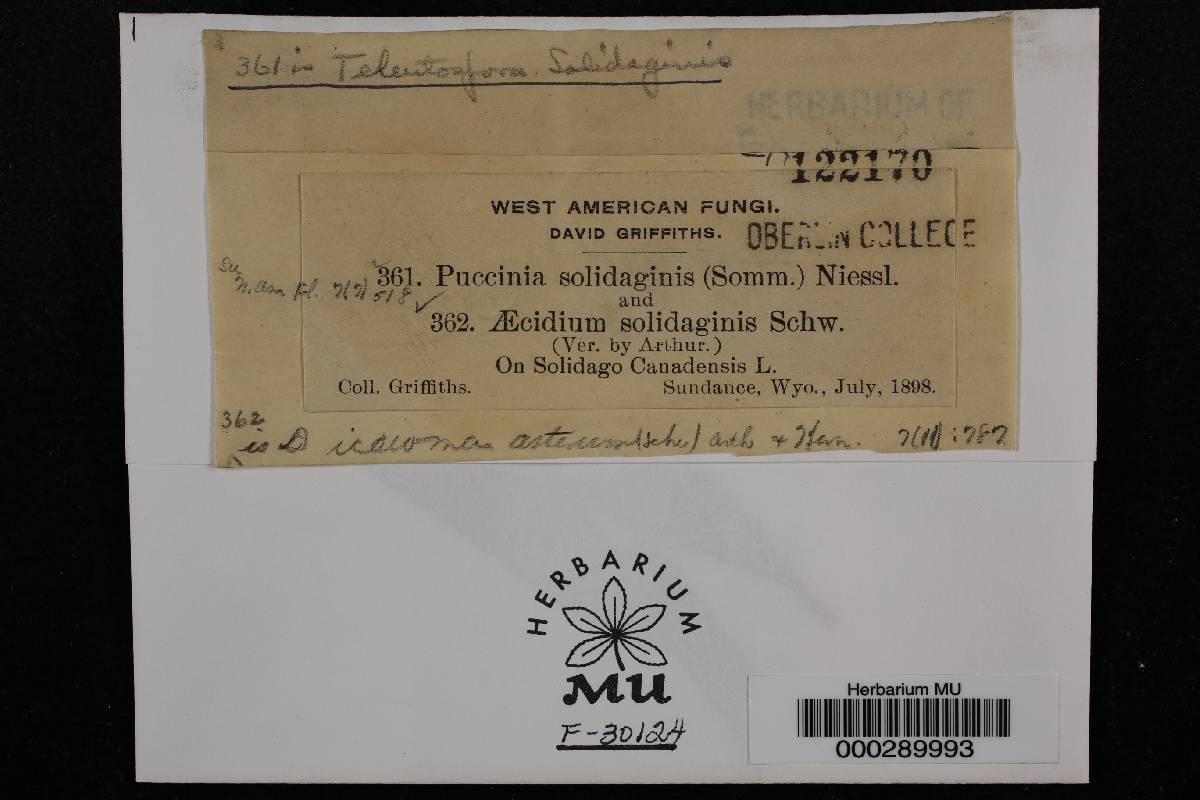 361 is Teleutospora Solidaginis
HERBARIUM OF
122170
OBERLIN COLLEGE
WEST AMERICAN FUNGI.
DAVID GRIFFITHS.
361. Puccinia solidaginis (Somm.) Niessl.
and
362. Æcidium solidaginis Schw.
(Ver. by Arthur.)
On Solidago Canadensis L.
Coll. Griffiths. Sundance, Wyo., July, 1898.
N. Am Fl. 7(7) 518
362
is Dicaeoma asterum (Schw) Arth & Kern. 7(11):787
HERBARIUM
MU
F-30124
Herbarium MU
000289993